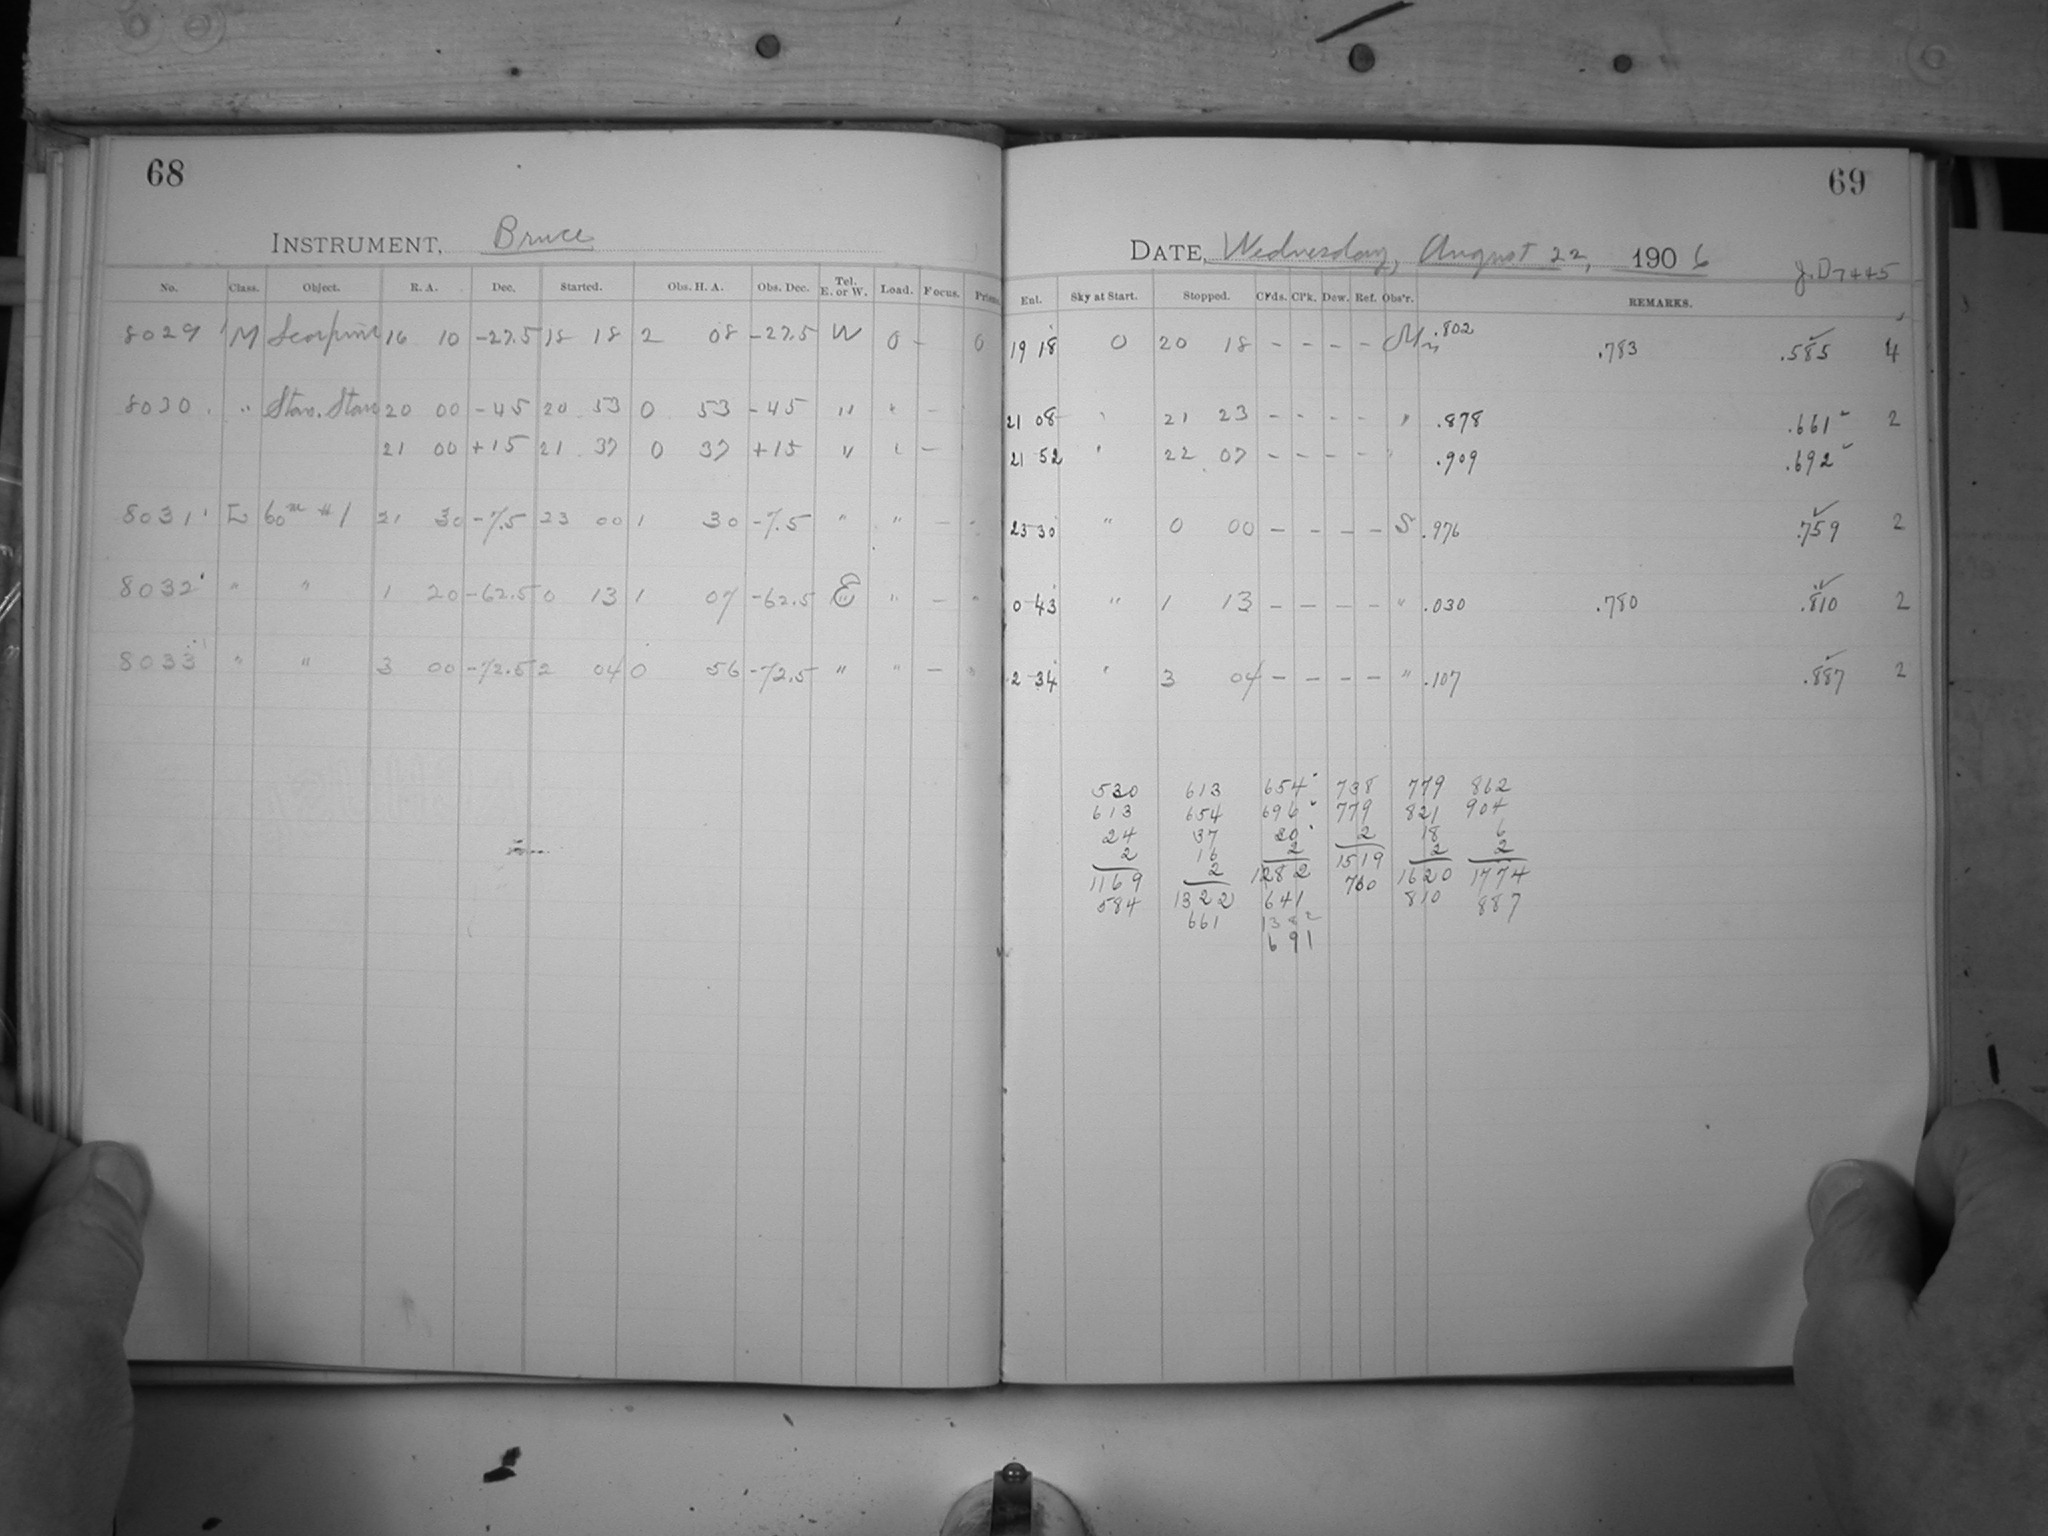 68
INSTRUMENT, Bruce
No. Class. Object. R. A. Dec. Started. Obs. H. A. Obs. Dec. Tel. E. or W. Load. Focus. Prism.
8029 M Scorpius 16 10 -27.5 18 18 2 08 -27.5 W 0 - 0
8030 " Stan. Stars 20 00 -45 20 53 0 53 -45 " " -
21 00 +15 21 37 0 37 +15 " " -
8031 L 60m #1 21 30 -7.5 23 00 1 30 -7.5 " " - "
8032 " " 1 20 -62.5 0 13 1 07 -62.5 E " - "
8033 " " 3 00 -72.5 2 04 0 56 -72.5 " " - "
69
DATE, Wednesday, August 22, 1906
J.D 7445
Eul. Sky at Start. Stopped. Cl'ds. Cl'k. Dew. Ref. Obs'r. REMARKS.
19 18 0 20 18 - - - - .802 .783 .585 4
21 08 " 21 23 - - - - " .878 .661 2
21 52 " 22 07 - - - - " .909 .692
23 30 " 0 00 - - - - S .976 .759 2
0 43 " 1 13 - - - - " .030 .780 .810 2
2 34 " 3 04 - - - - " .107 .887 2
530 613 654 738 779 862
613 654 696 779 821 904
24 37 20 2 18 6
2 16 2 1519 2 2
1169 2 1282 760 1620 1774
584 1322 641 810 887
661 1382
691